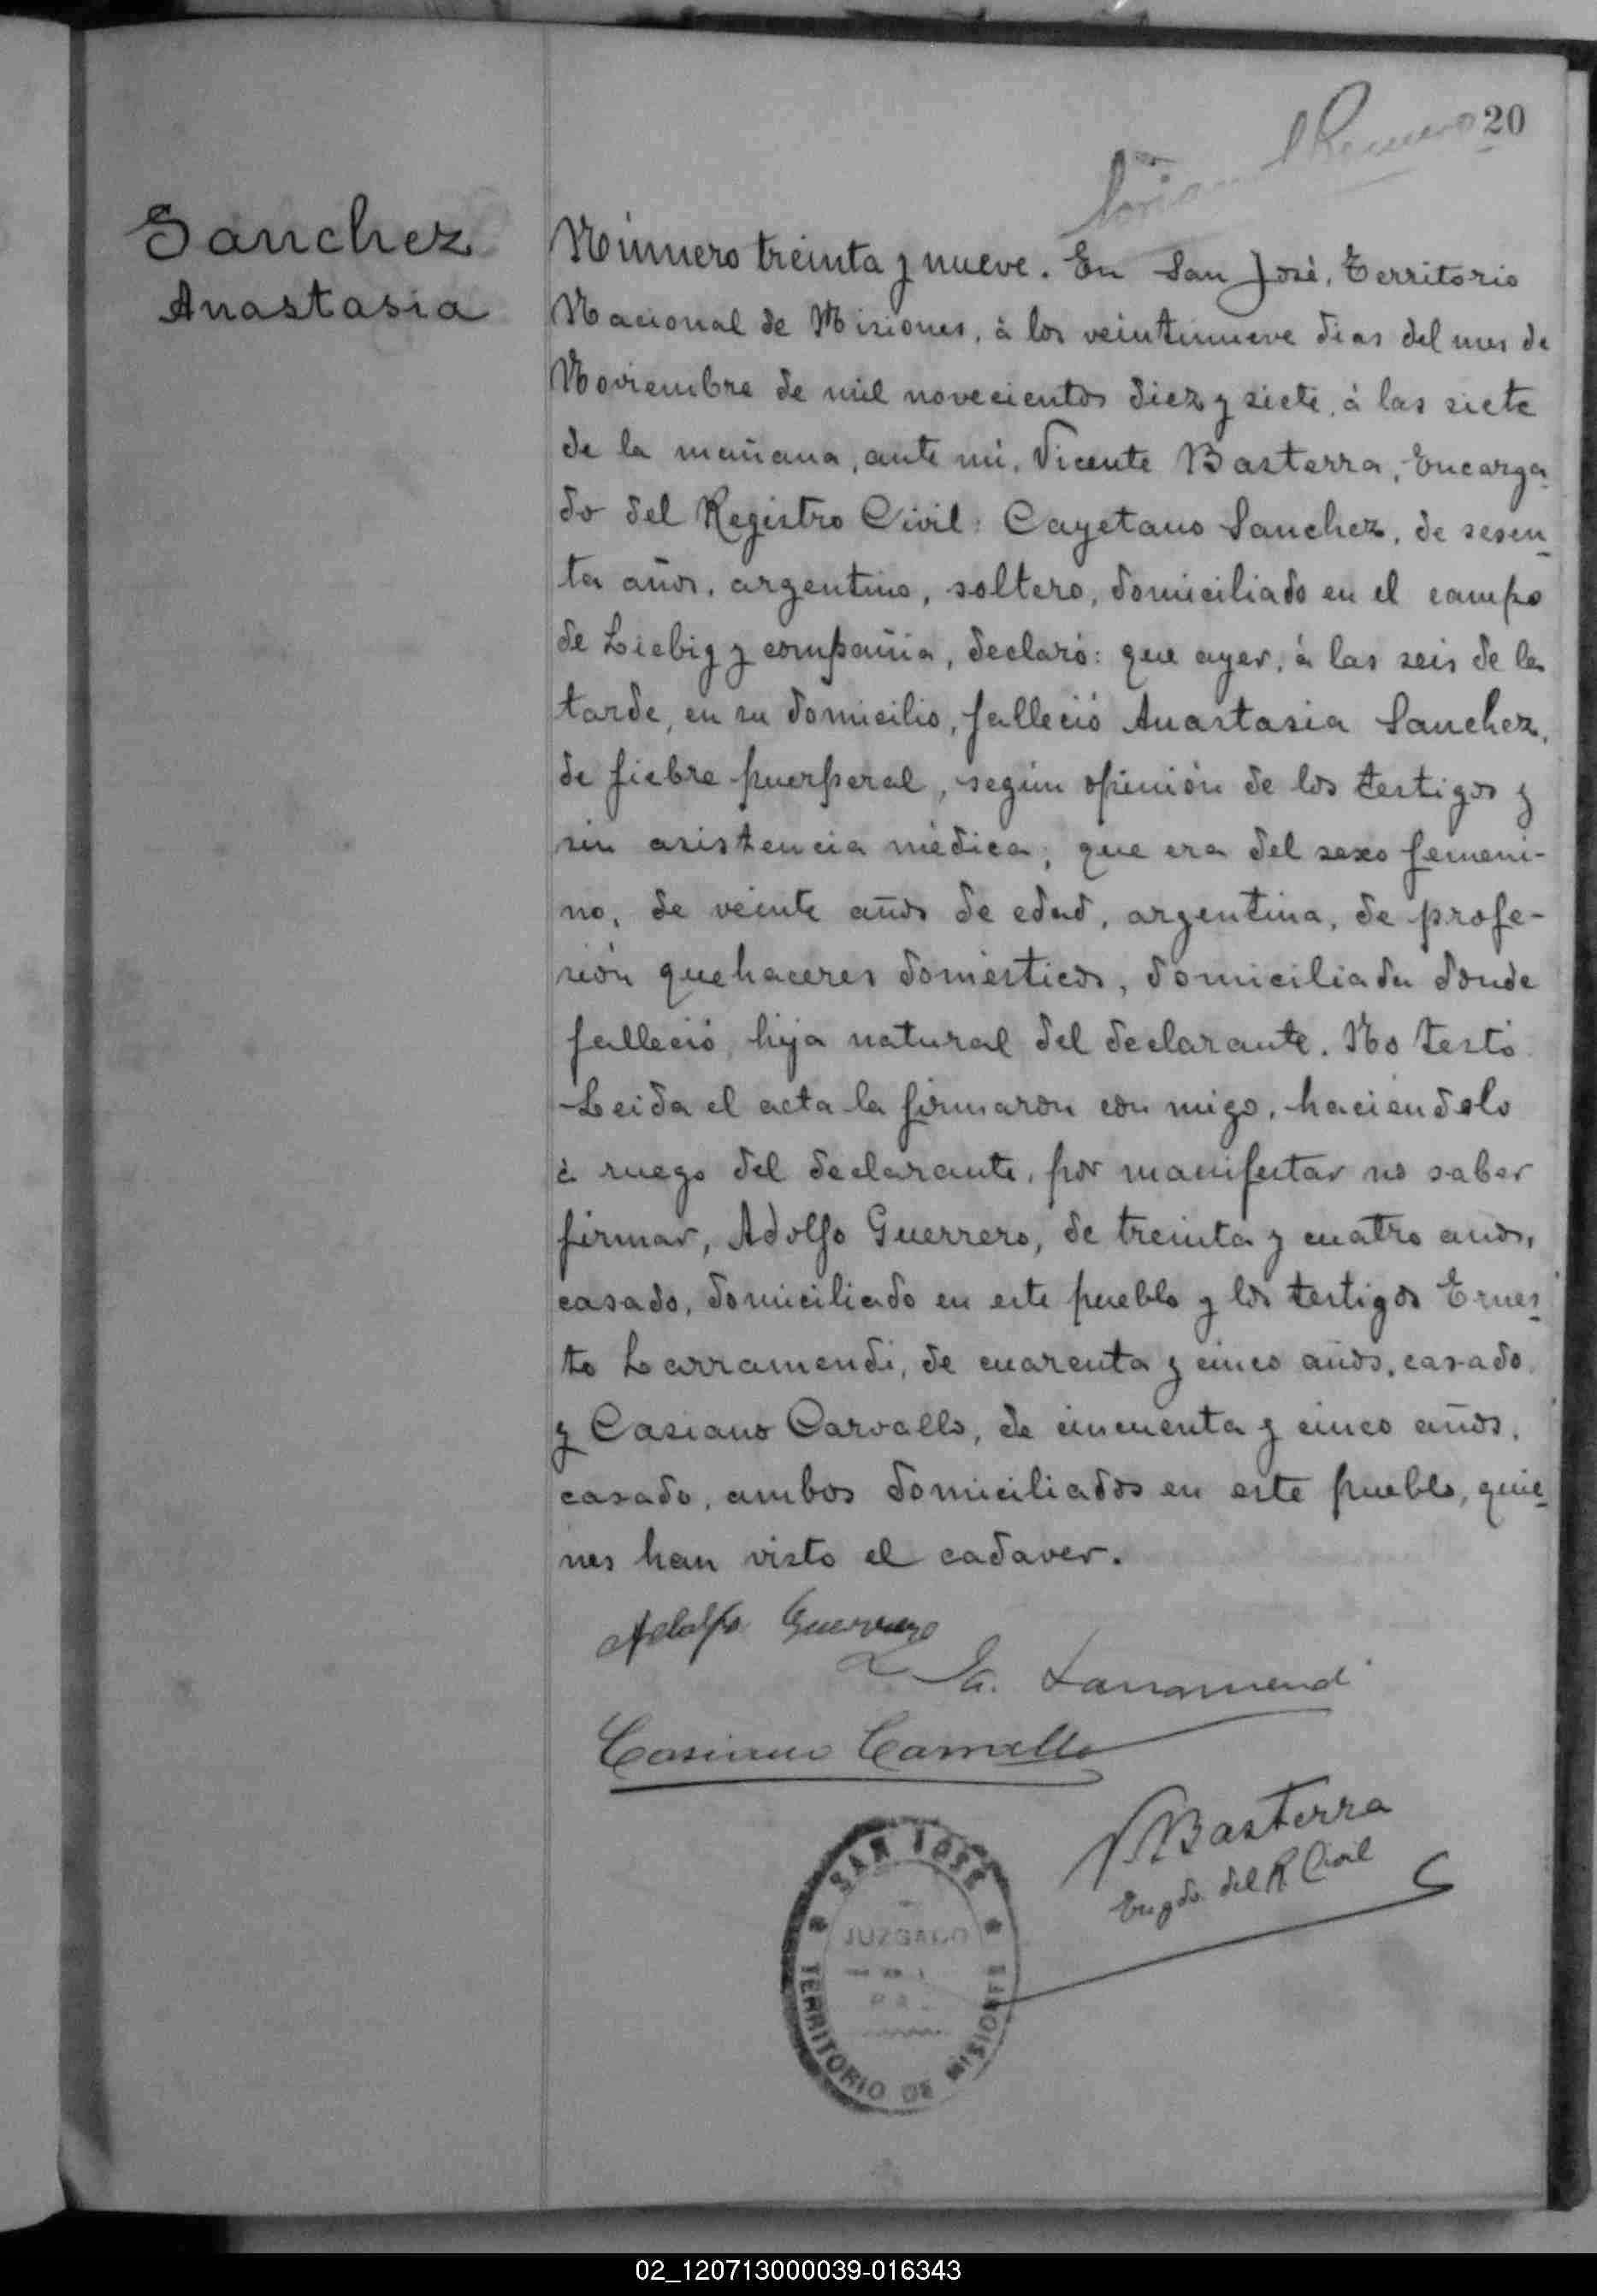 20
Sanchez
Anastasia
Número treinta y nueve. En San José, Territorio
Nacional de Misiones, á los veintinueve dias del mes de
Noviembre de mil novecientos diez y siete, á las siete
de la mañana, ante mi, Vicente Basterra, Encarga_
do del Registro Civil: Cayetano Sanchez, de sesen_
ta años, argentino, soltero, domiciliado en el campo
de Liebig y compañia, declaró: que ayer, á las seis de la
tarde, en su domicilio, falleció Anastasia Sanchez,
de fiebre puerperal, según opinión de los testigos y
sin asistencia médica; que era del sexo femeni-
no, de veinte años de edad, argentina, de profe-
sión quehaceres domésticos, domiciliada donde
falleció, hija natural del declarante. No testó.
Leida el acta la firmaron con migo, haciéndolo
á ruego del declarante, por manifestar no saber
firmar, Adolfo Guerrero, de treinta y cuatro años,
casado, domiciliado en este pueblo y los testigos Ernes_
to Larramendi, de cuarenta y cinco años, casado,
y Casiano Carvallo, de cincuenta y cinco años,
casado, ambos domiciliados en este pueblo, quie_
nes han visto el cadaver.
Adolfo Guerrero
Larramendi
Casiano Carvallo
V. Basterra
Engdo. del R. Civil
SAN JOSÉ
JUZGADO
TERRITORIO DE MISIONES
02_120713000039-016343